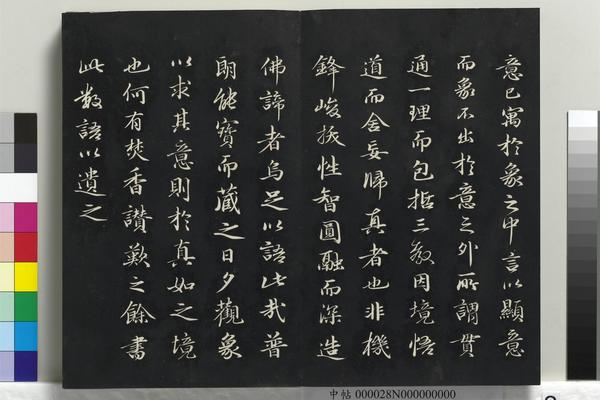 意已寓於象之中言以顯意
而象不出於意之外所謂貫
通一理而包括三教因境悟
道而舍妄歸真者也非機
鋒峻拔性智圓融而深造
佛諦者烏足以語此哉普
明能寶而藏之日夕觀象
以求其意則於真如之境
也何有焚香讚歎之餘書
此数語以遺之
中帖 000028N000000000